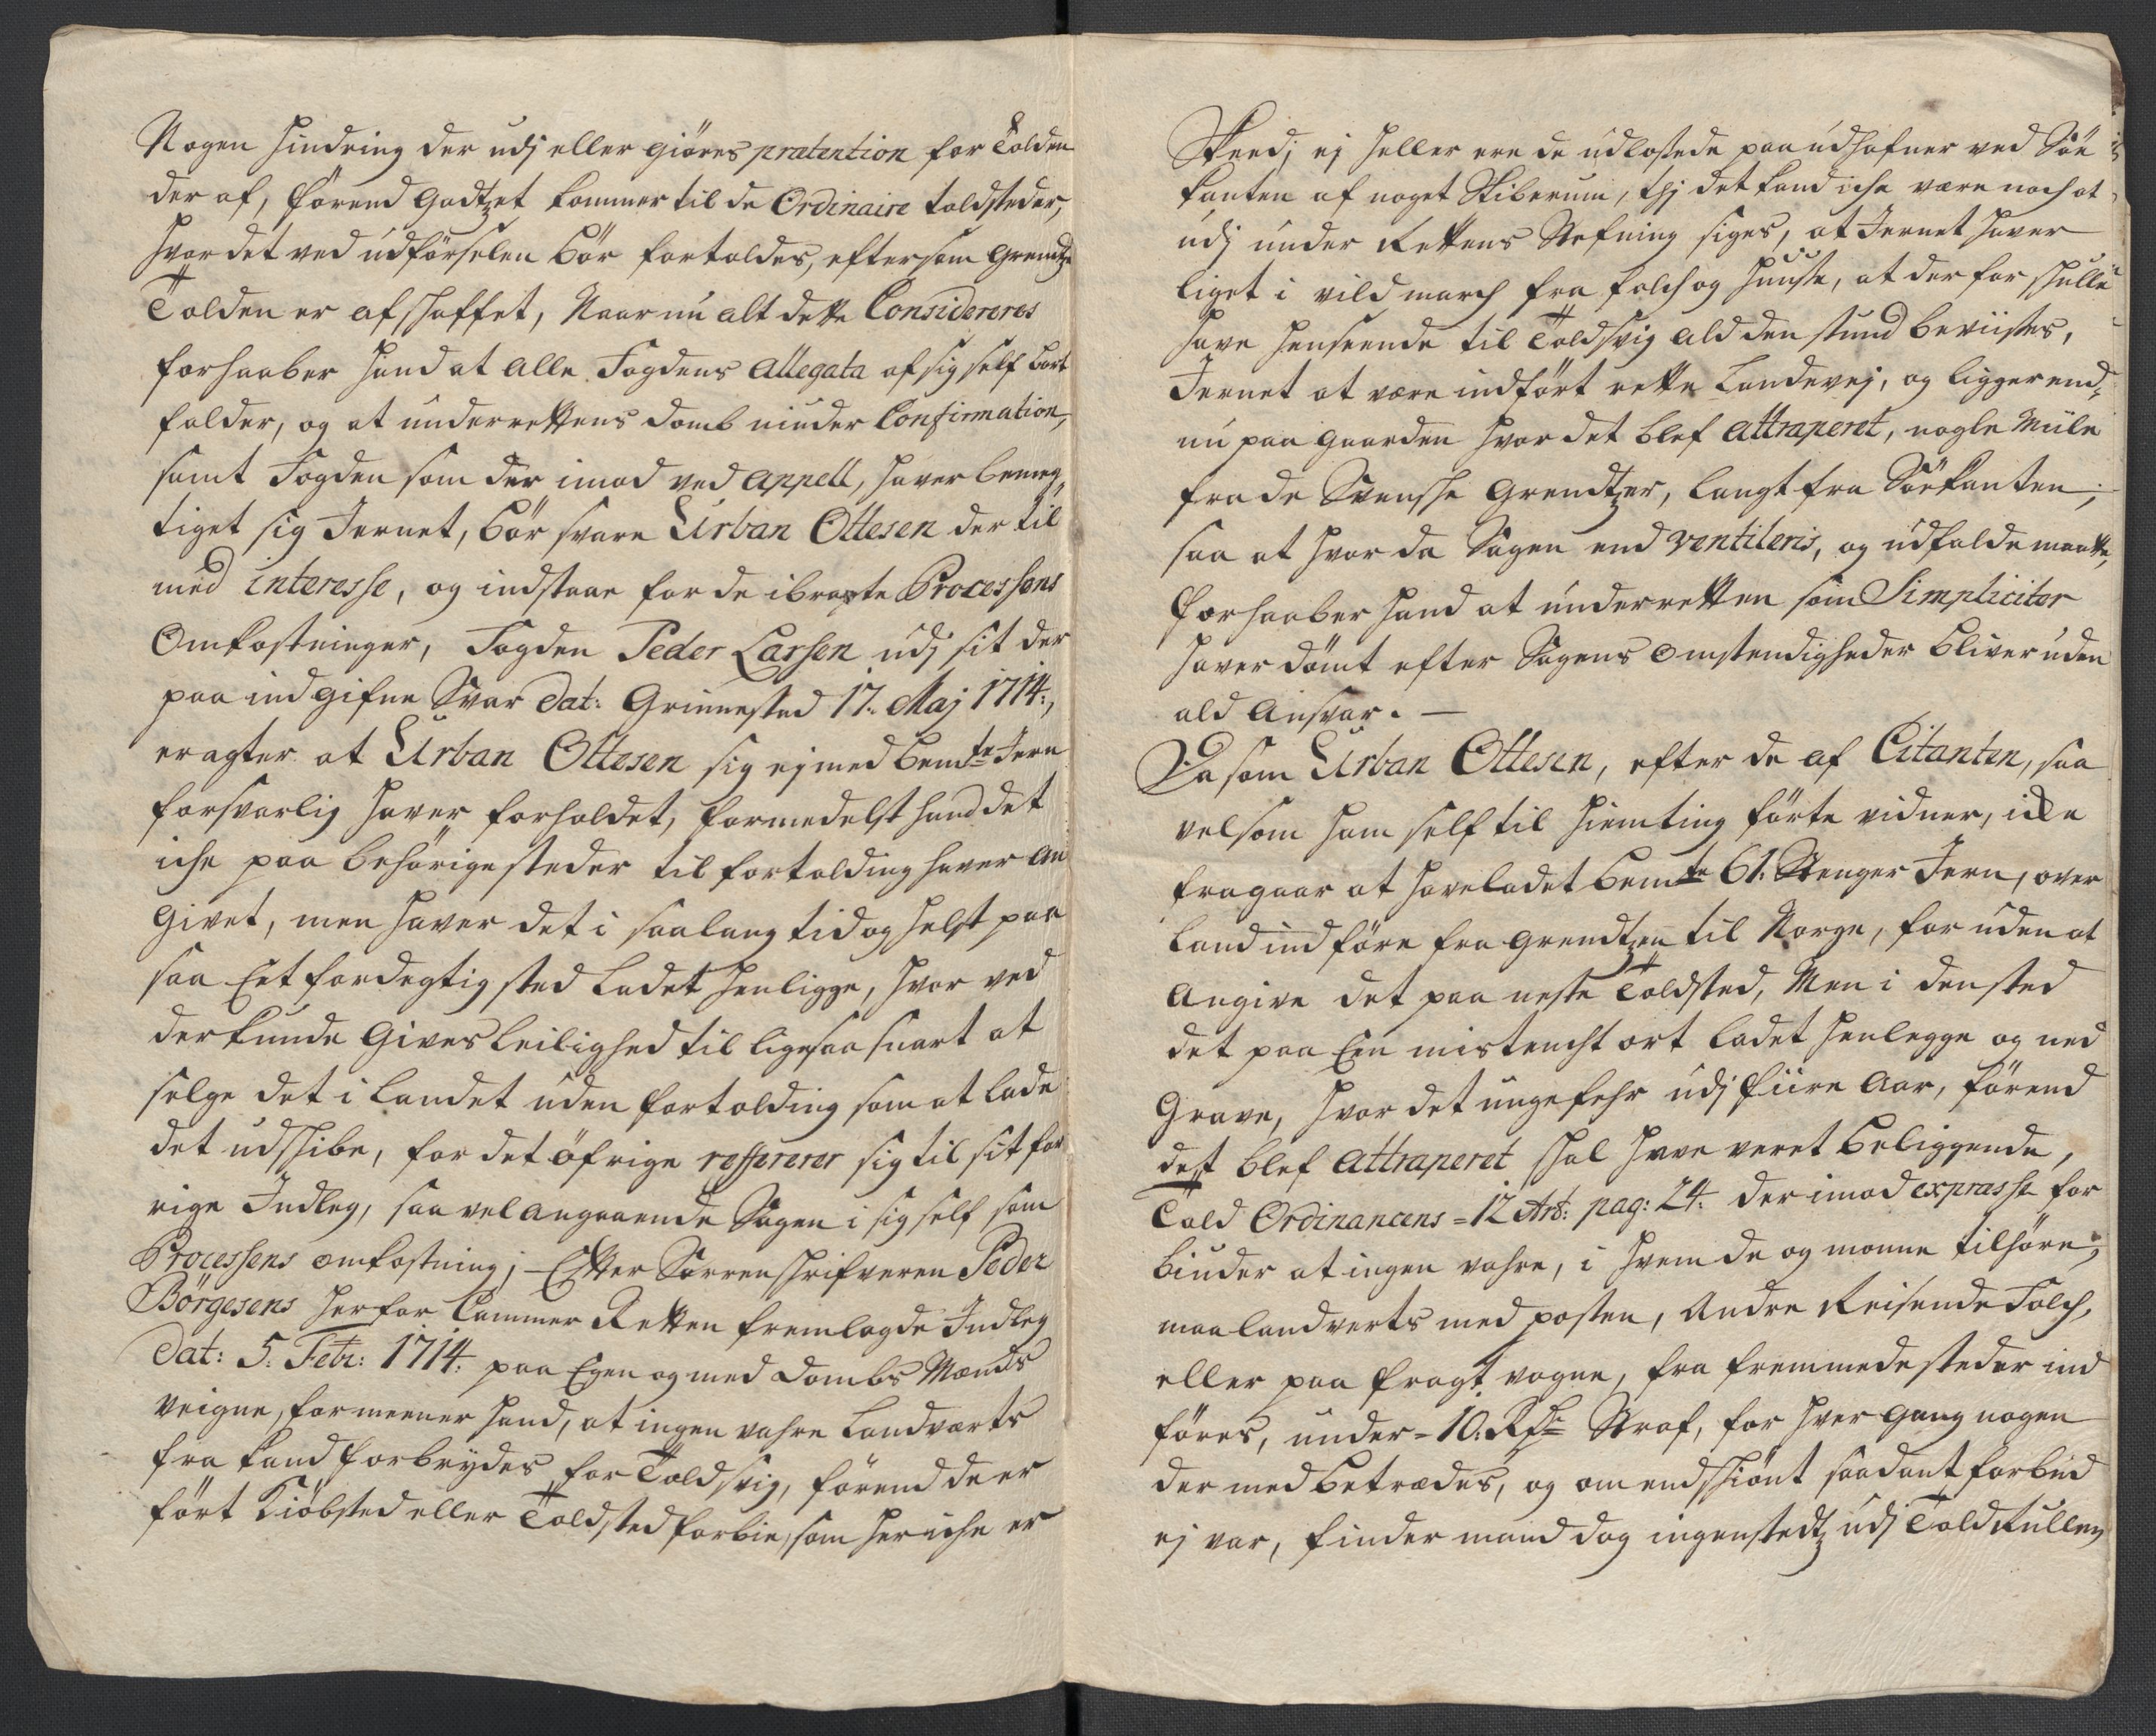 Nogen hindring der udj eller giöres prætention for Tolden
der af, förend godtzet kommer til de Ordinaire toldsteder,
hvor det ved udförselen bör fortoldes, eftersom grendtze
Tolden er afskaffet, Naar nu alt dette Considereres
forhaaber hand at alle Fogdens Allegata af sig self bort
falder, og at underrettens domb niuder Confirmation,
samt Fogden som der imod ved Appell, haver bemeg,
tiget sig Jernet, bör svare Urban Ottesen der til
med interesse, og indstaae for de ibragte Processens
Omkostninger, Fogden Peder Larsen udj sit der
paa indgifne Svar Dat: Grinnested 17. Maj 1714.,
eragter at Urban Ottesen sig ej med bemte Jern
forsvarlig haver forholdet, formedelst hand det
iche paa behörige steder til fortolding haver An
givet, men haver det i saa lang tid og helst paa
saa Eet fordegtig sted Ladet henligge, hvor ved
der kunde gives Leilighed til ligesaa snart at
selge det i Landet uden fortolding som at lade
det udskibe, for det öfrige reffererer sig til sit for
rige Indleg, saa vel angaaende Sagen i sig self som
Processens omkostning; Efter Sorrenskrifveren Peder
Börgesens her for Cammer Retten fremlagde Indleg
Dat: 5. Febr: 1714. paa Egen og med Dombs Mænds
veigne, formeener hand, at ingen vahre Landværts
fra kand forbrydes for Toldsvig, förend de er
fört Kiöbsted eller Toldsted forbie, som her iche er
Skeed; ej heller ere de udlossede paa udhafner ved Söe
kanten af noget Skiberum, thj det kand iche være noch at
udj under Rettens Stefning siges, at Jernet haver
liget i vildmarch fra folch og huuse, at der for skulle
have henseende til Toldsvig ald den stund beviistes,
Jernet at være indfört rette Landevej, og ligger end,
nu paa gaarden hvor det blef attraperet, nogle Miile
fra de Svenske grendtzer, langt fra Söekanten;
saa at hvor da Sagen end ventileris, og udfalde maatte,
forhaaber hand at underretten som Simpliciter
haver dömt efter Sagens omstendigheder bliver uden
ald Ansvar. —
Da som Urban Ottesen, efter de af Citanten, saa
velsom ham self til hiemting förte vidner, icke
fragaar at have ladet bemte 61. Stenger Jern, over
Land indföre fra grendtzen til Norge, for uden at
Angive det paa neste Toldsted, Men i den sted
det paa Een mistencht ort ladet henlegge og ned
Grave, hvor det ungefehr udj fiire Aar, förend
det blef attraperet skal have veret beliggende,
Told Ordinancens = 12 Art: pag: 24. der imod expresse for
biuder at ingen vahre, i hvem de og monne tilhöre,
maa landverts med posten, Andre Reisende Folch,
eller paa fragt vogne, fra fremmede steder ind
föres, under = 10. Rdr Straf, for hver gang nogen
der med betrædes, og om endskiönt saadant forbud
ej var, finder mand dog ingenstedtz udj Told Rullen